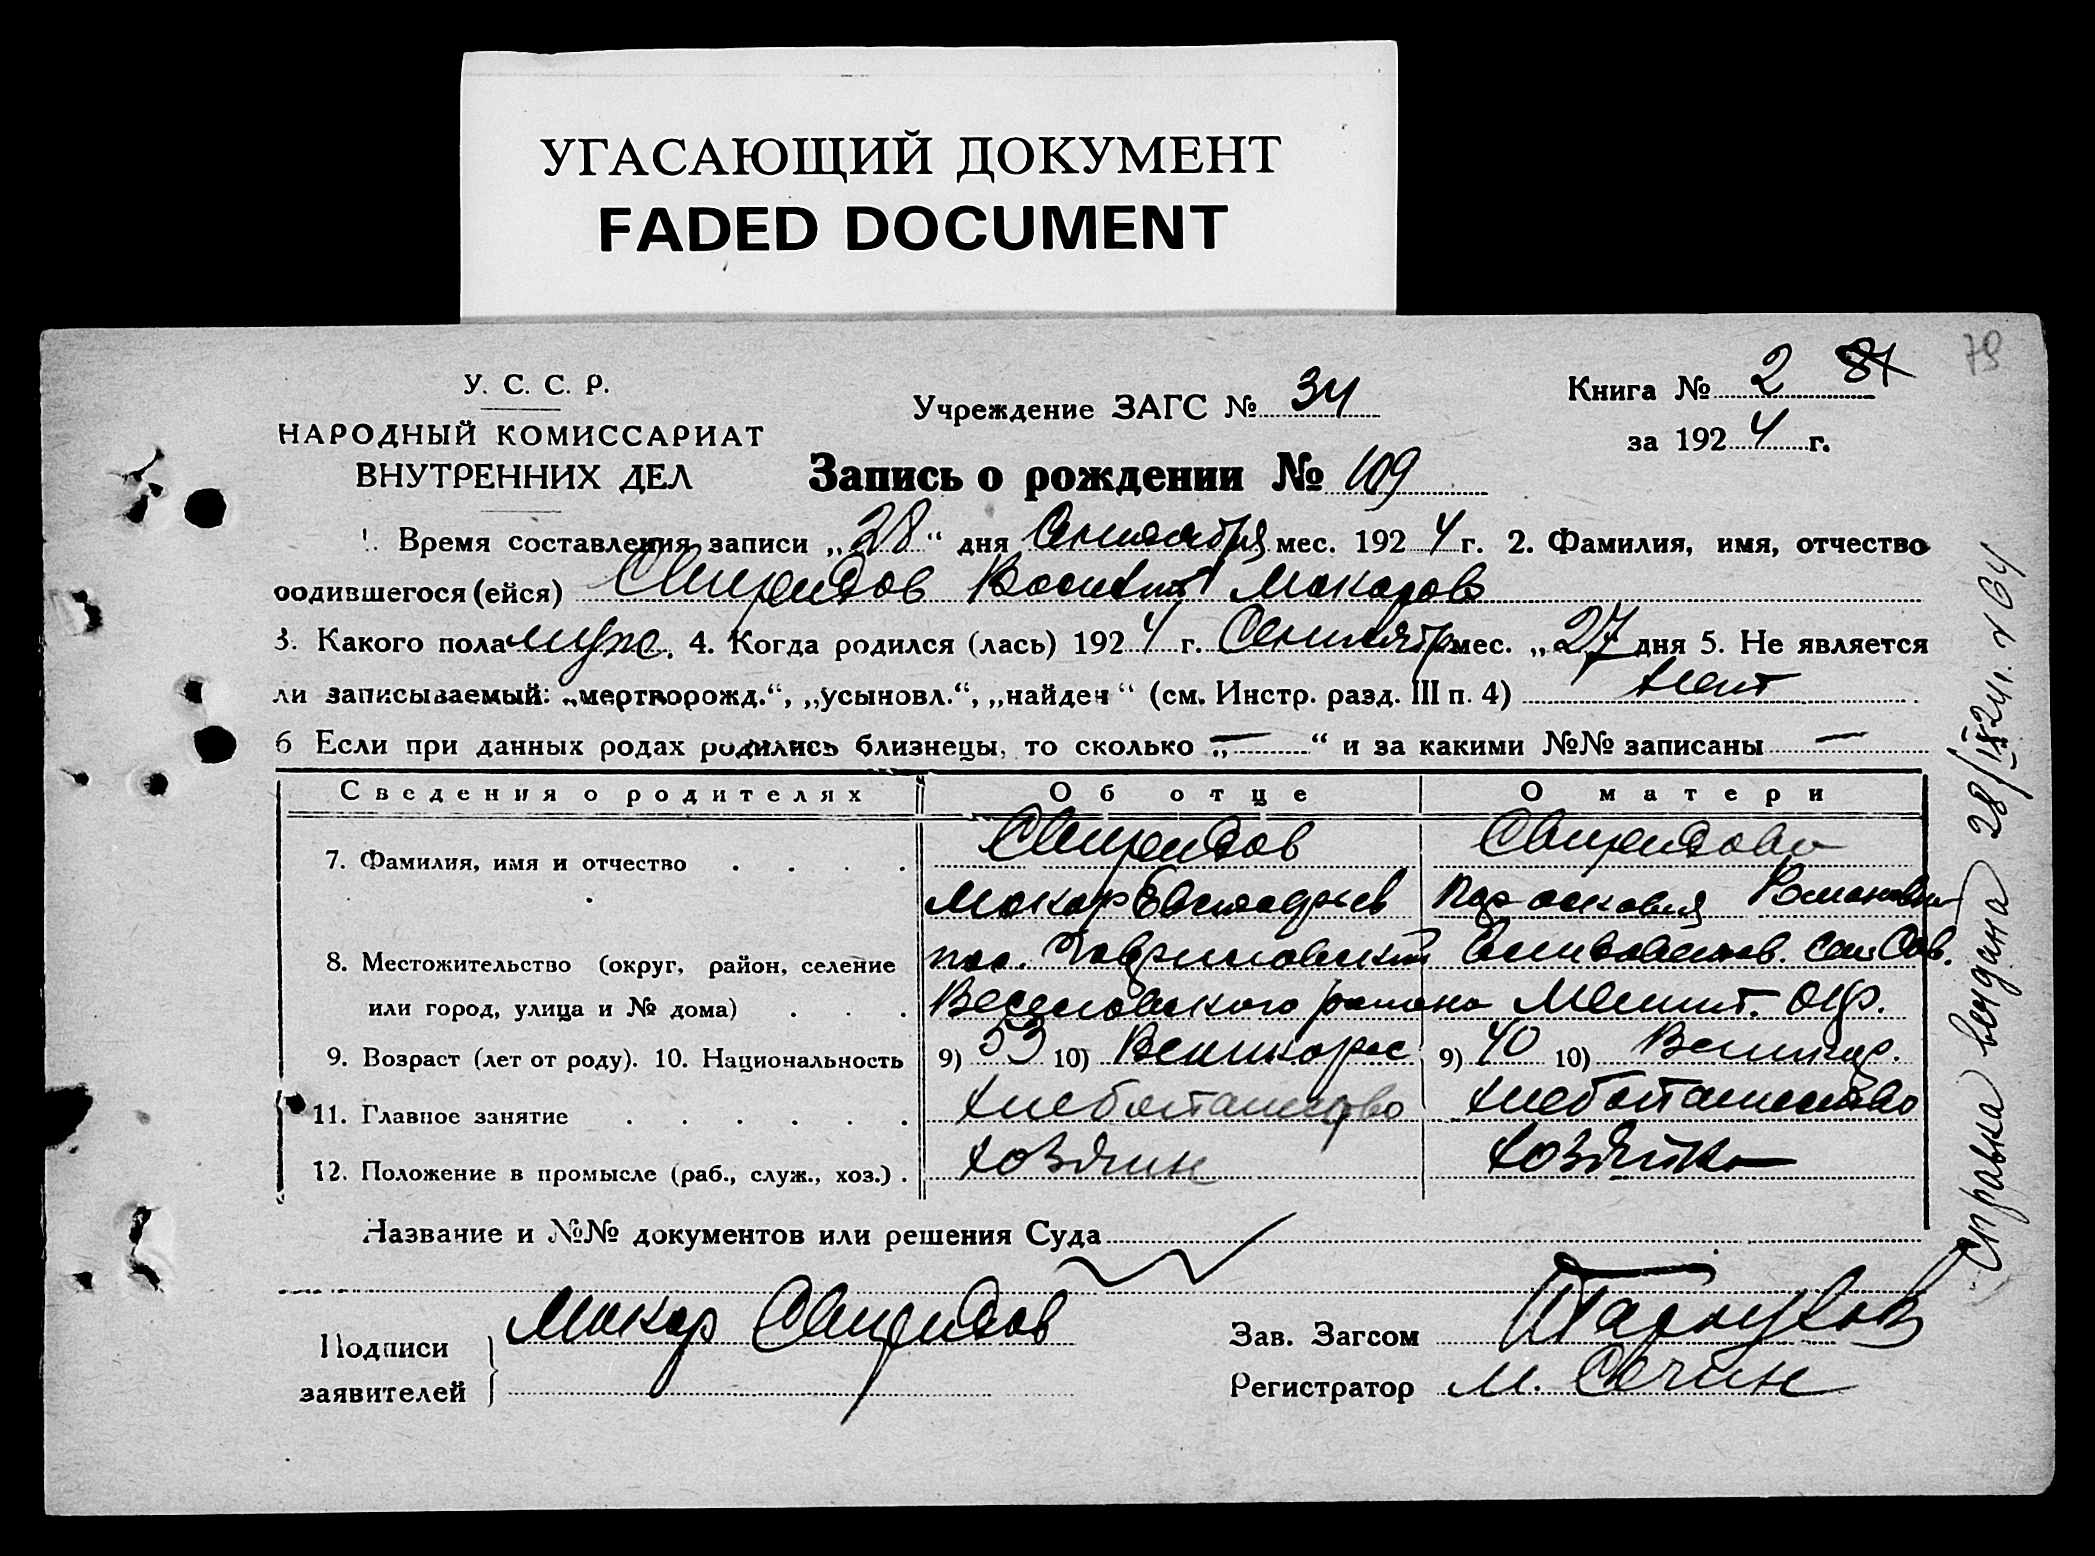 УГАСАЮЩИЙ ДОКУМЕНТ
FADED DOCUMENT
79
У. С. С. Р.
НАРОДНЫЙ КОМИССАРИАТ
ВНУТРЕННИХ ДЕЛ
Учреждение ЗАГС № 34
Книга № 2 81
за 1924 г.
Запись о рождении № 109
1. Время составления записи „28“ дня Сентября мес. 1924 г. 2. Фамилия, имя, отчество
родившегося (ейся) Свиридов Василий Макаров
3. Какого пола муж. 4. Когда родился (лась) 1924 г. Сентябр мес. „27 дня 5. Не является
ли записываемый: „мертворожд.“, „усыновл.“, „найден“ (см. Инстр. разд. III п. 4) Нет
6 Если при данных родах родились близнецы, то сколько „—“ и за какими №№ записаны —
Сведения о родителях Об отце О матери
7. Фамилия, имя и отчество . . . . Свиридов Свиридова
Макар Парасковия
8. Местожительство (округ, район, селение пос. Сел Сов.
или город, улица и № дома) . . . Веселовского района Мелит. Окр.
9. Возраст (лет от роду). 10. Национальность 9) 53 10) Великорос 9) 40 10) Великор.
11. Главное занятие . . . . . . Хлебопашество Хлебопашество
12. Положение в промысле (раб., служ., хоз.) . хозяин хозяйка
Название и №№ документов или решения Суда
Подписи
заявителей
Макар Свиридов
Зав. Загсом
Регистратор М.
Справка выдана 28/IX 24 г. № 64